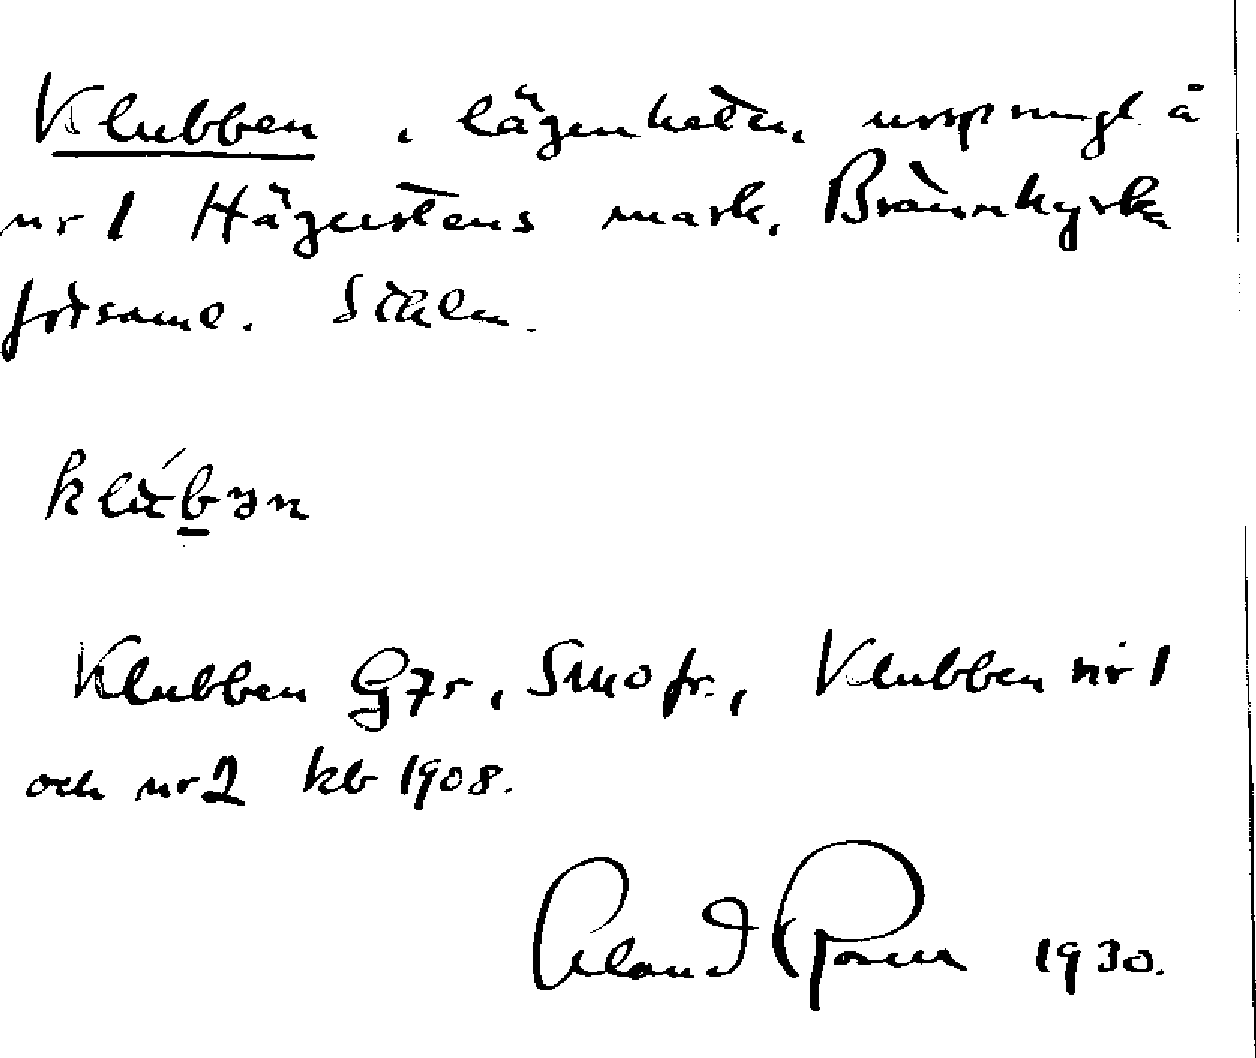 Klubben, lägenheten, ursprungl å
nr 1 Hägerstens mark, Brännkyrka
församl. Sthlm.
Klubben G7r, Smo fr., Klubben nr 1
och nr 2 kb 1908.
Erland Rosell 1930.